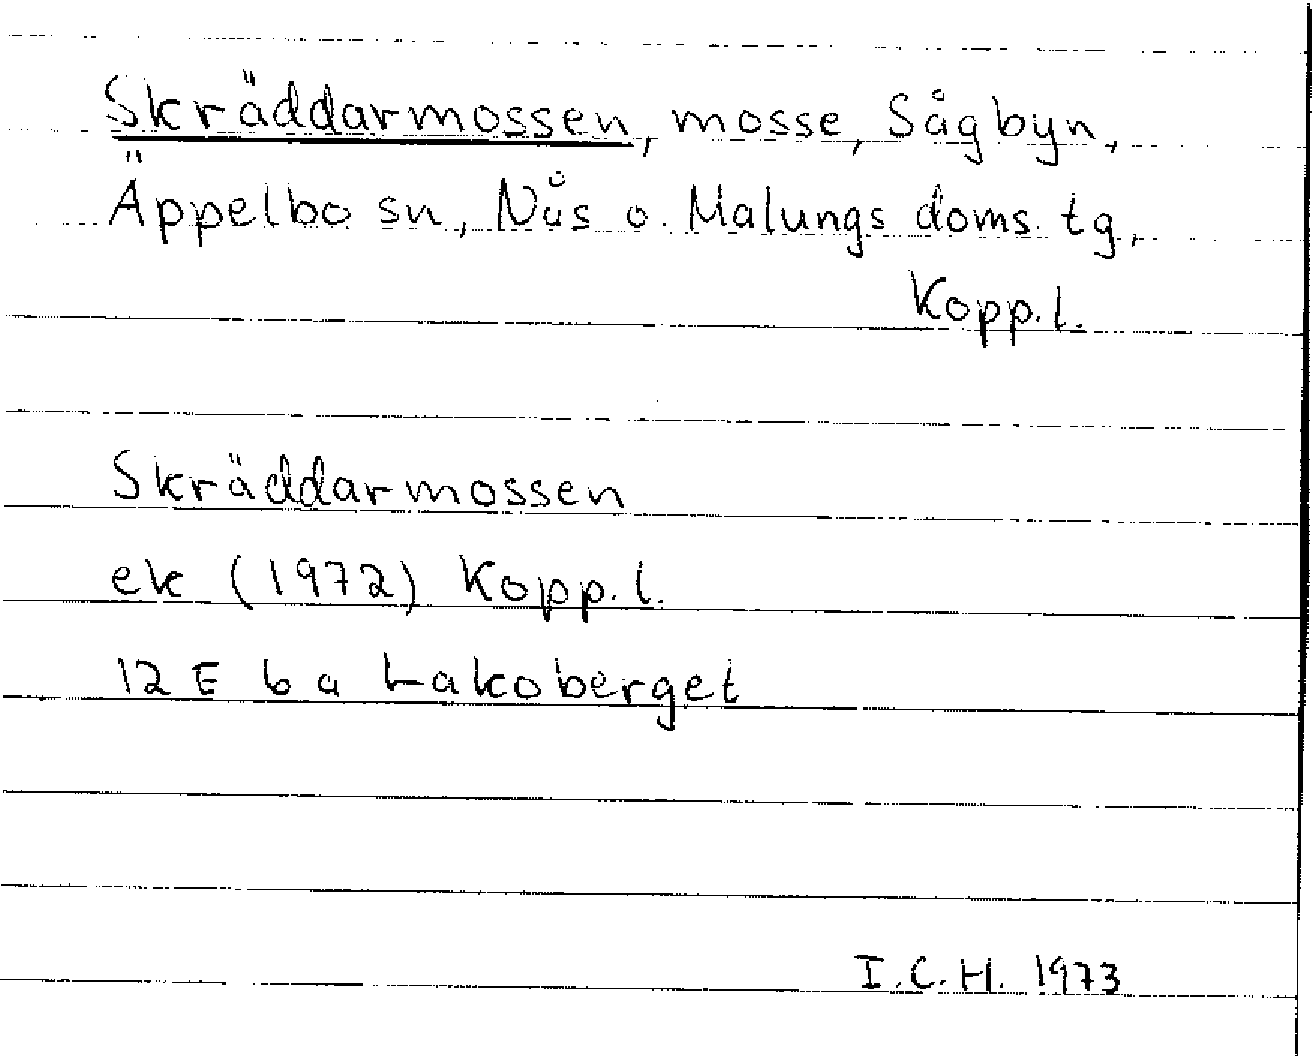 Skräddarmossen, mosse, Sågbyn,
Äppelbo sn, Nås o. Malungs doms. tg,
Kopp. l.
Skräddarmossen
ek (1972) Kopp. l.
12 E 6 a Lakoberget
I.C.H. 1973